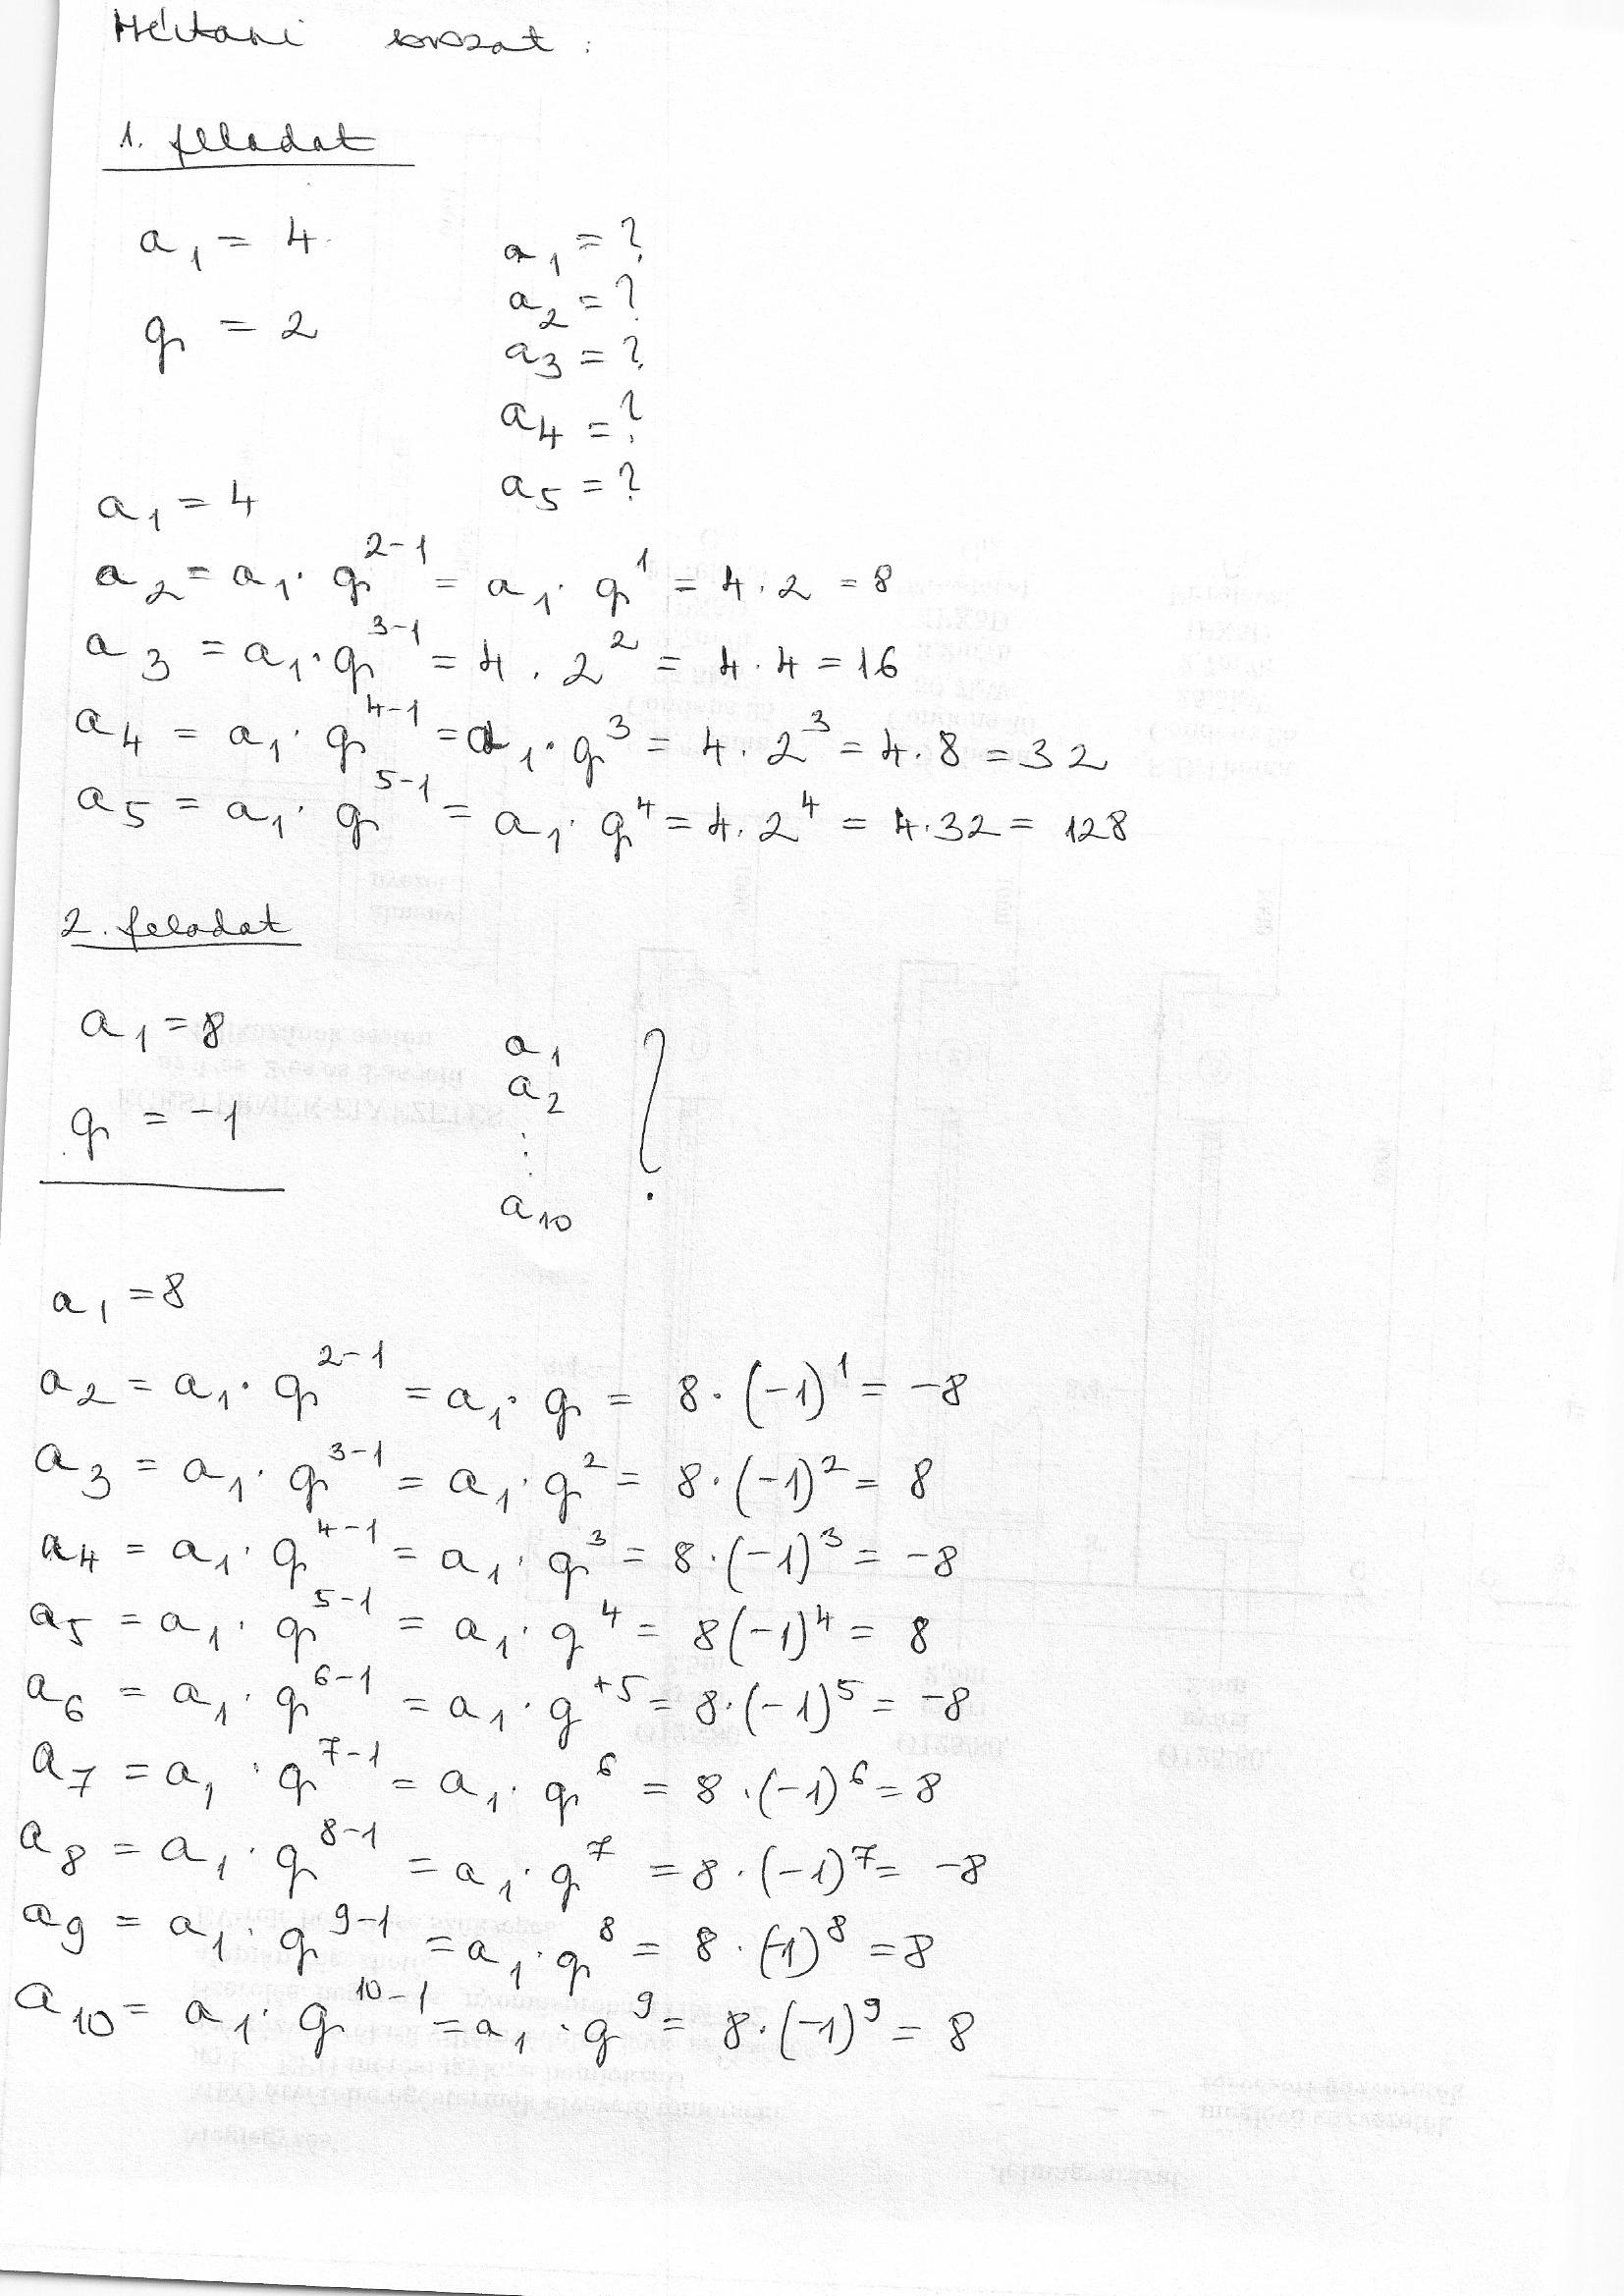 Mértani sorozat:
1. feladat
a₁ = 4 a₁ = ?
a₂ = ?
q = 2 a₃ = ?
a₄ = ?
a₅ = ?
a₁ = 4
a₂ = a₁ · q²⁻¹ = a₁ · q¹ = 4 · 2 = 8
a₃ = a₁ · q³⁻¹ = 4 · 2² = 4 · 4 = 16
a₄ = a₁ · q⁴⁻¹ = a₁ · q³ = 4 · 2³ = 4 · 8 = 32
a₅ = a₁ · q⁵⁻¹ = a₁ · q⁴ = 4 · 2⁴ = 4 · 32 = 128
2. feladat
a₁ = 8 a₁ ?
a₂
q = -1 ⋮
a₁₀
a₁ = 8
a₂ = a₁ · q²⁻¹ = a₁ · q = 8 · (-1)¹ = -8
a₃ = a₁ · q³⁻¹ = a₁ · q² = 8 · (-1)² = 8
a₄ = a₁ · q⁴⁻¹ = a₁ · q³ = 8 · (-1)³ = -8
a₅ = a₁ · q⁵⁻¹ = a₁ · q⁴ = 8(-1)⁴ = 8
a₆ = a₁ · q⁶⁻¹ = a₁ · q⁺⁵ = 8 · (-1)⁵ = -8
a₇ = a₁ · q⁷⁻¹ = a₁ · q⁶ = 8 · (-1)⁶ = 8
a₈ = a₁ · q⁸⁻¹ = a₁ · q⁷ = 8 · (-1)⁷ = -8
a₉ = a₁ · q⁹⁻¹ = a₁ · q⁸ = 8 · (-1)⁸ = 8
a₁₀ = a₁ · q¹⁰⁻¹ = a₁ · q⁹ = 8 · (-1)⁹ = 8